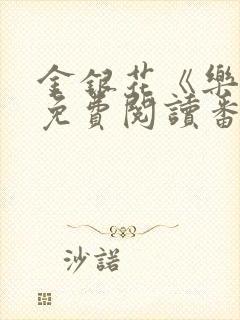 金銀花《樂
免費閱讀番
沙諾